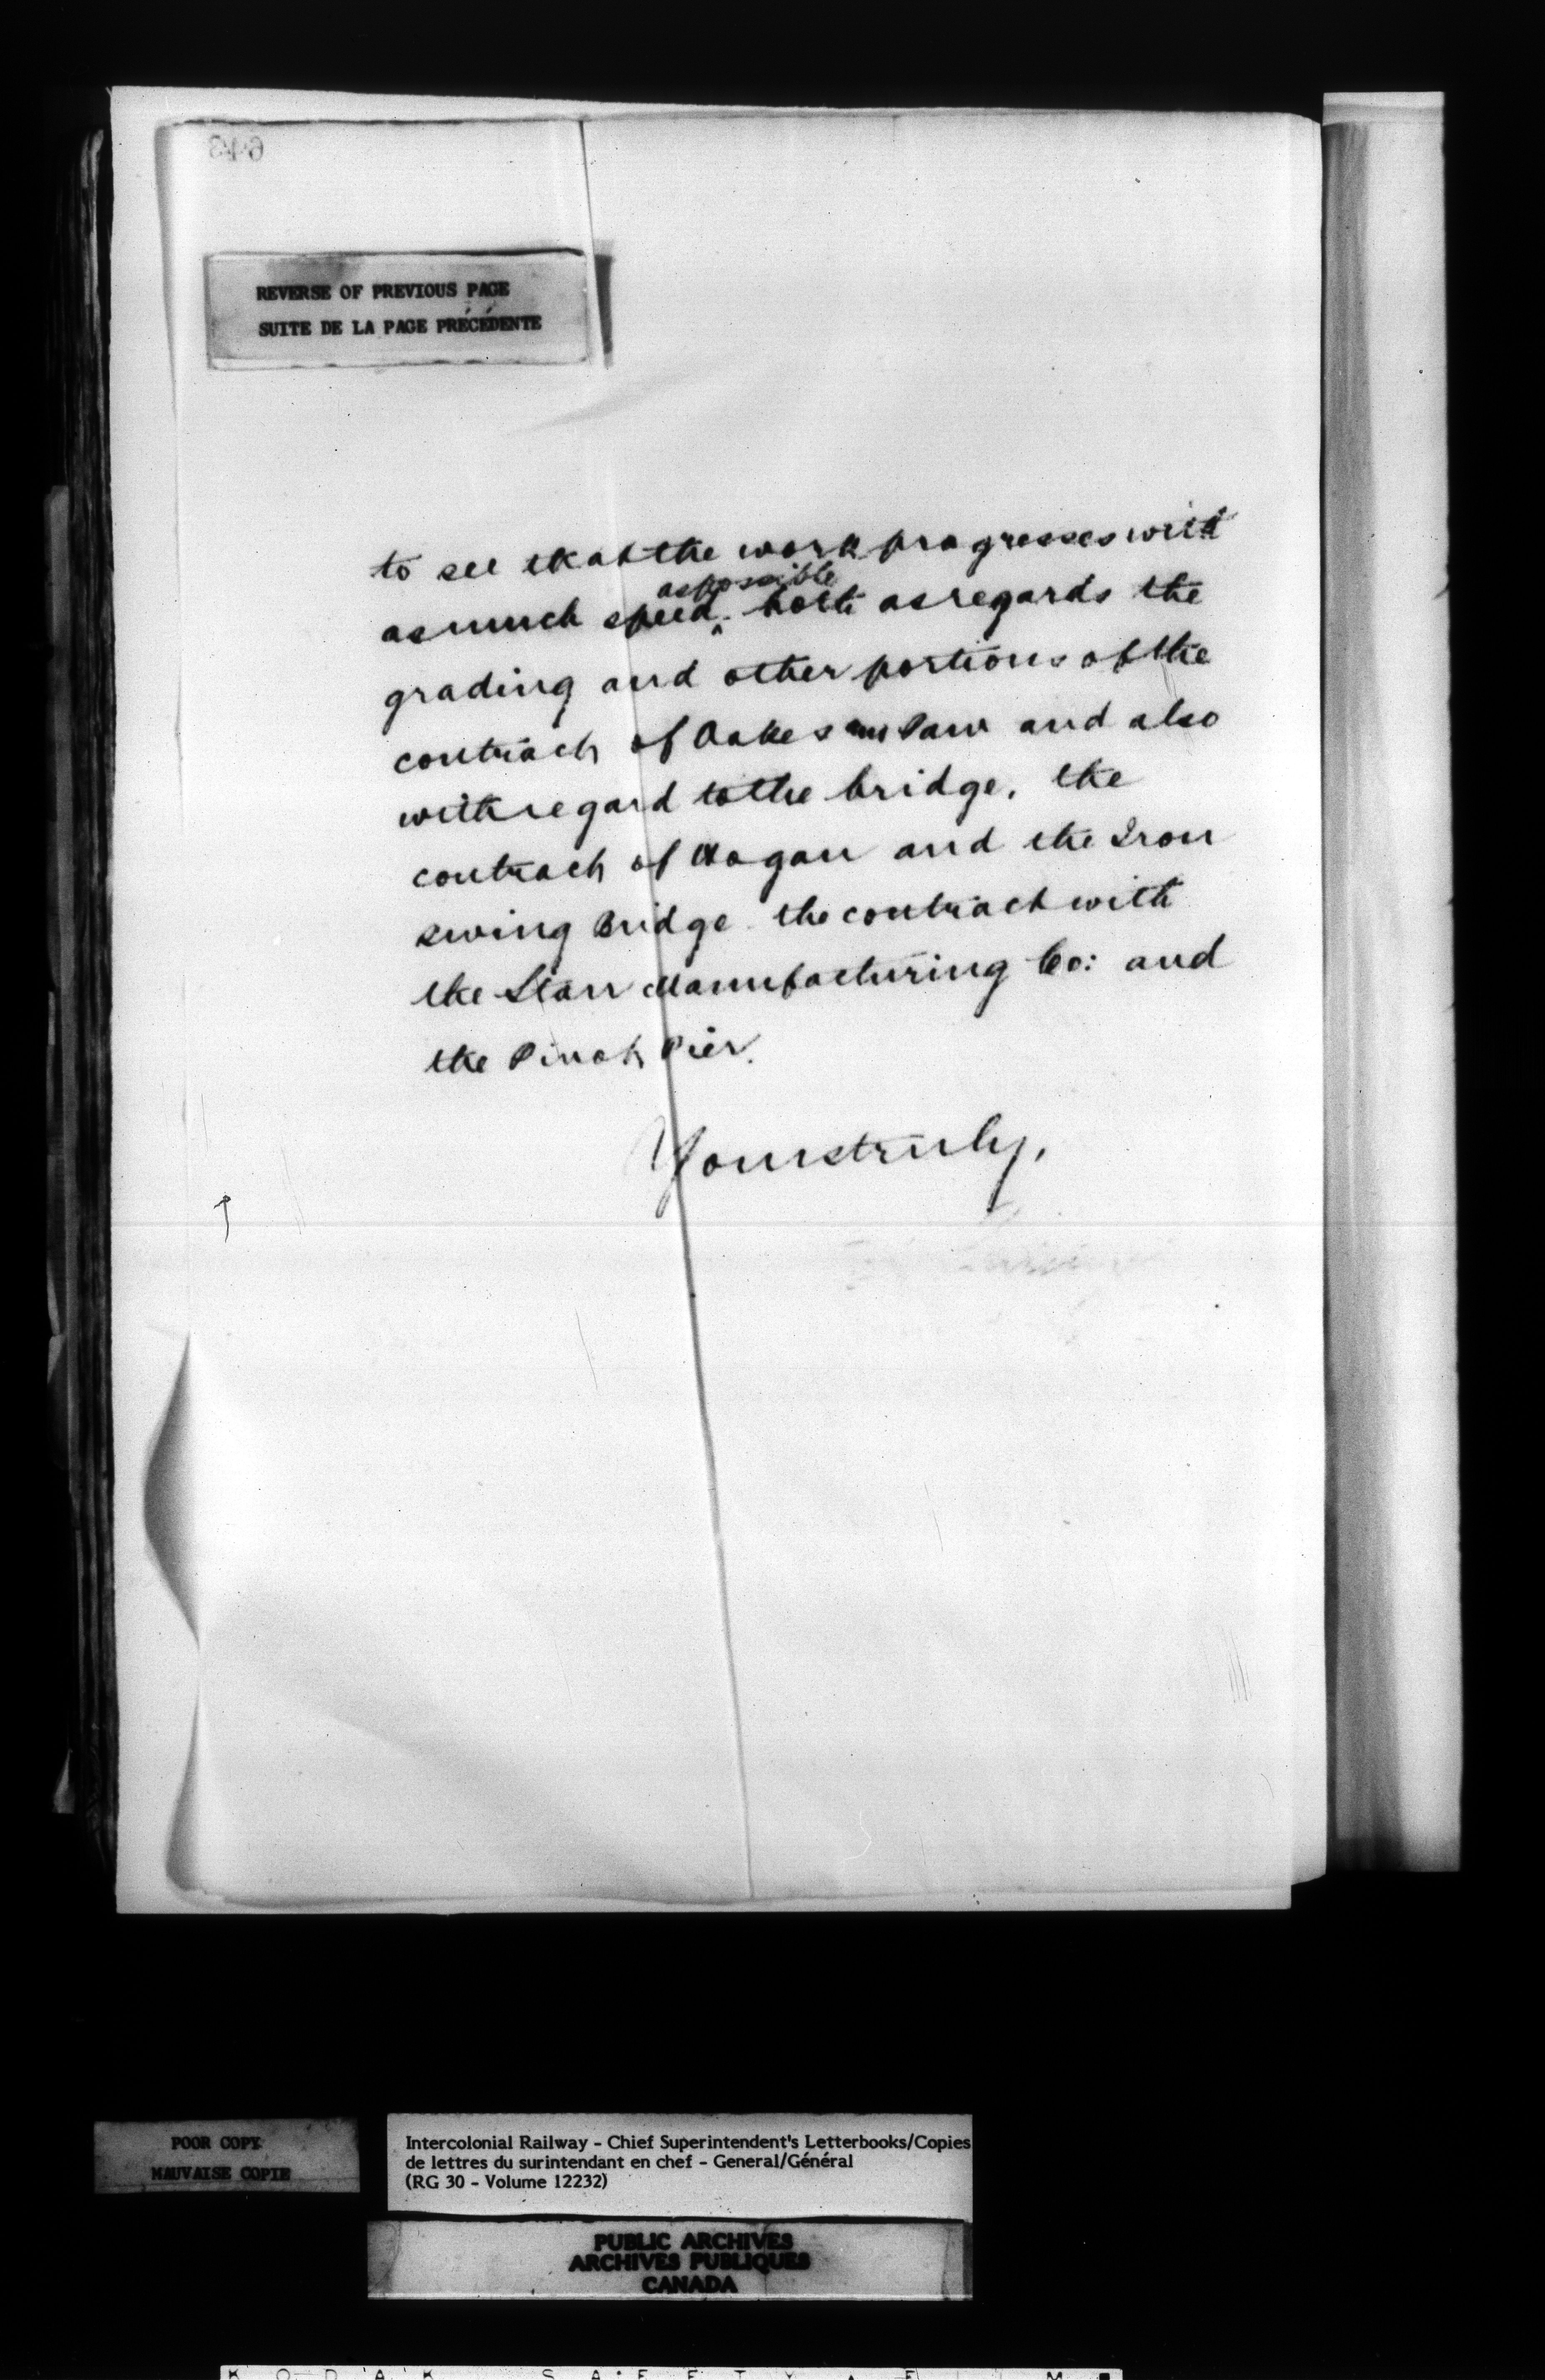 643
REVERSE OF PREVIOUS PAGE
SUITE DE LA PAGE PRÉCÉDENTE
to see that the work progresses with
as possible
as much speed ^ both as regards the
grading and other portions of the
contract of Oakes and also
with regard to the bridge, the
contract of Hogan and the Iron
swing Bridge the contract with
the Starr Manufacturing Co: and
the Pivot Pier.
Yours truly,
POOR COPY
MAUVAISE COPIE
Intercolonial Railway - Chief Superintendent's Letterbooks/Copies
de lettres du surintendant en chef - General/Général
(RG 30 - Volume 12232)
PUBLIC ARCHIVES
ARCHIVES PUBLIQUES
CANADA
KODAK SAFETY